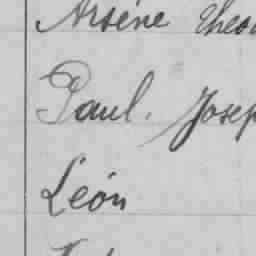 Arsène
Paul. Josep
Léon